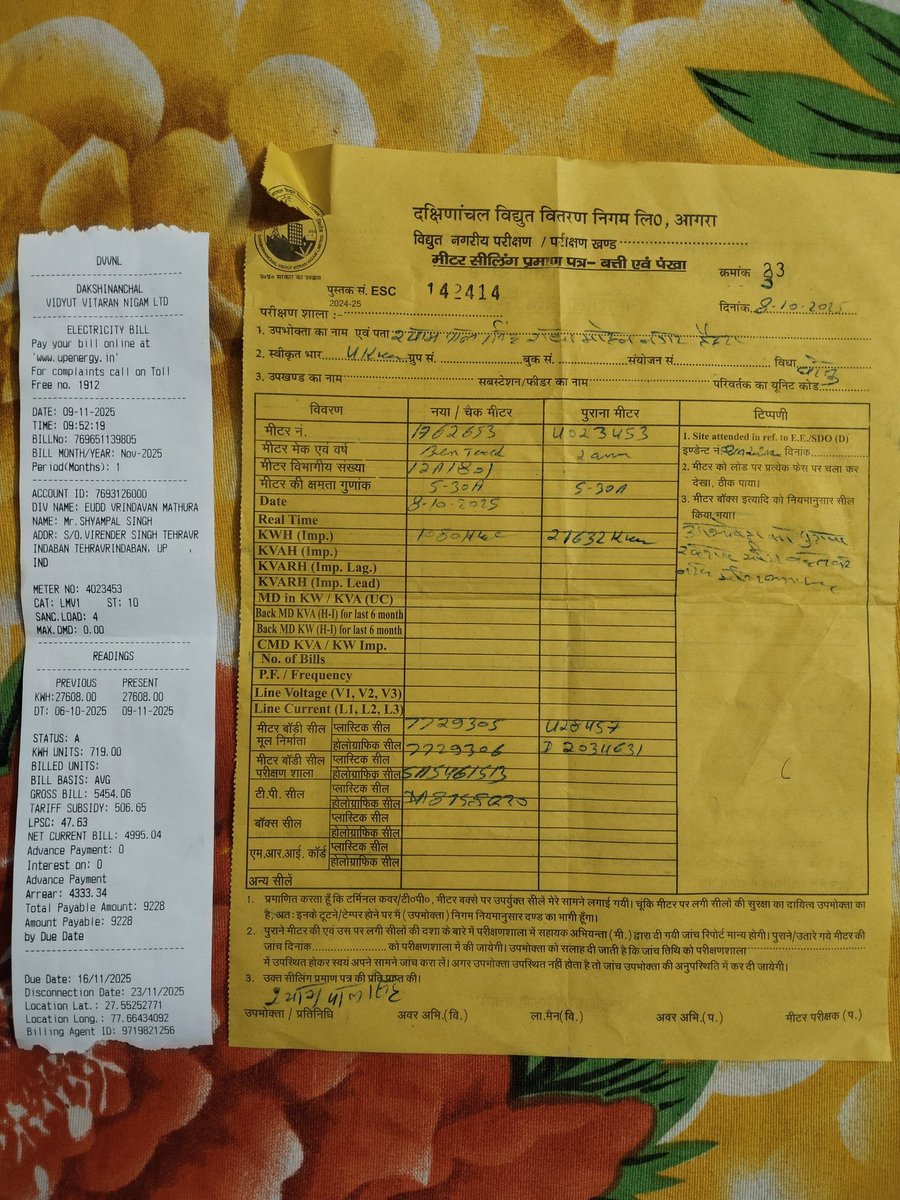 DVVNL
DAKSHINANCHAL
VIDYUT VITARAN NIGAM LTD
ELECTRICITY BILL
Pay your bill online at
'www.upenergy.in'
For complaints call on Toll
Free no. 1912
DATE: 09-11-2025
TIME: 09:52:19
BILLNo: 769651139805
BILL MONTH/YEAR: Nov-2025
Period(Months): 1
ACCOUNT ID: 7693126000
DIV NAME: EUDD VRINDAVAN MATHURA
NAME: Mr.SHYAMPAL SINGH
ADDR: S/O.VIRENDER SINGH TEHRAVR
INDABAN TEHRAVRINDABAN, UP ,
IND
METER NO: 4023453
CAT: LMV1 ST: 10
SANC.LOAD: 4
MAX.DMD: 0.00
READINGS
PREVIOUS PRESENT
KWH:27608.00 27608.00
DT: 06-10-2025 09-11-2025
STATUS: A
KWH UNITS: 719.00
BILLED UNITS:
BILL BASIS: AVG
GROSS BILL: 5454.06
TARIFF SUBSIDY: 506.65
LPSC: 47.63
NET CURRENT BILL: 4995.04
Advance Payment: 0
Interest on: 0
Advance Payment
Arrear: 4333.34
Total Payable Amount: 9228
Amount Payable: 9228
by Due Date
Due Date: 16/11/2025
Disconnection Date: 23/11/2025
Location Lat.: 27.55252771
Location Long.: 77.66434092
Billing Agent ID: 9719821256
दक्षिणांचल विद्युत वितरण निगम लि०, आगरा
विद्युत नगरीय परीक्षण / परीक्षण खण्ड
मीटर सीलिंग प्रमाण पत्र- बत्ती एवं पंखा
उ०प्र० सरकार का उपक्रम
क्रमांक 33
पुस्तक सं. ESC 142414
2024-25
दिनांक 8-10-2025
परीक्षण शाला :-
1. उपभोक्ता का नाम एवं पता श्याम पाल सिंह
2. स्वीकृत भार 4 Kw ग्रुप सं. बुक सं. संयोजन सं. विधा
3. उपखण्ड का नाम सबस्टेशन/फीडर का नाम परिवर्तक का यूनिट कोड
विवरण नया / चेक मीटर पुराना मीटर टिप्पणी
मीटर नं. 1762653 4023453
मीटर मेक एवं वर्ष
मीटर विभागीय संख्या 12A1801
मीटर की क्षमता गुणांक 5-30A 5-30A
Date 8-10-2025
Real Time
KWH (Imp.) 27632
KVAH (Imp.)
KVARH (Imp. Lag.)
KVARH (Imp. Lead)
MD in KW / KVA (UC)
Back MD KVA (H-I) for last 6 month
Back MD KW (H-I) for last 6 month
CMD KVA / KW Imp.
No. of Bills
P.F. / Frequency
Line Voltage (V1, V2, V3)
Line Current (L1, L2, L3)
मीटर बॉडी सील मूल निर्माता प्लास्टिक सील 7729305 428457
होलोग्राफिक सील 7729306 D 2034631
मीटर बॉडी सील परीक्षण शाला प्लास्टिक सील
होलोग्राफिक सील
टी.पी. सील प्लास्टिक सील
होलोग्राफिक सील
बॉक्स सील प्लास्टिक सील
होलोग्राफिक सील
एम.आर.आई. कॉर्ड प्लास्टिक सील
होलोग्राफिक सील
अन्य सीलें
1. Site attended in ref to E.E./SDO (D)
इण्डेन्ट नं. दिनांक
2. मीटर को लोड पर प्रत्येक फेस पर चला कर
देखा, ठीक पाया।
3. मीटर बॉक्स इत्यादि को नियमानुसार सील
किया गया।
1. प्रमाणित करता हूँ कि टर्मिनल कवर/टी०पी०, मीटर बक्से पर उपर्युक्त सीलें मेरे सामने लगाई गयी। चूंकि मीटर पर लगी सीलों की सुरक्षा का दायित्व उपभोक्ता का
है, अतः इनके टूटने/टेम्पर होने पर मैं (उपभोक्ता) निगम नियमानुसार दण्ड का भागी हूँगा।
2. पुराने मीटर की एवं उस पर लगी सीलों की दशा के बारे में परीक्षणशाला में सहायक अभियन्ता (मी.) द्वारा दी गयी जांच रिपोर्ट मान्य होगी। पुराने/उतारे गये मीटर की
जांच दिनांक को परीक्षणशाला में की जायेगी। उपभोक्ता को सलाह दी जाती है कि जांच तिथि को परीक्षणशाला
में उपस्थित होकर स्वयं अपने सामने जांच करा लें। अगर उपभोक्ता उपस्थित नहीं होता है तो जांच उपभोक्ता की अनुपस्थिति में कर दी जायेगी।
3. उक्त सीलिंग प्रमाण पत्र की प्रति प्राप्त की।
श्याम पाल सिंह
उपभोक्ता / प्रतिनिधि अवर अभि.(वि.) ला.मैन(वि.) अवर अभि.(प.) मीटर परीक्षक (प.)